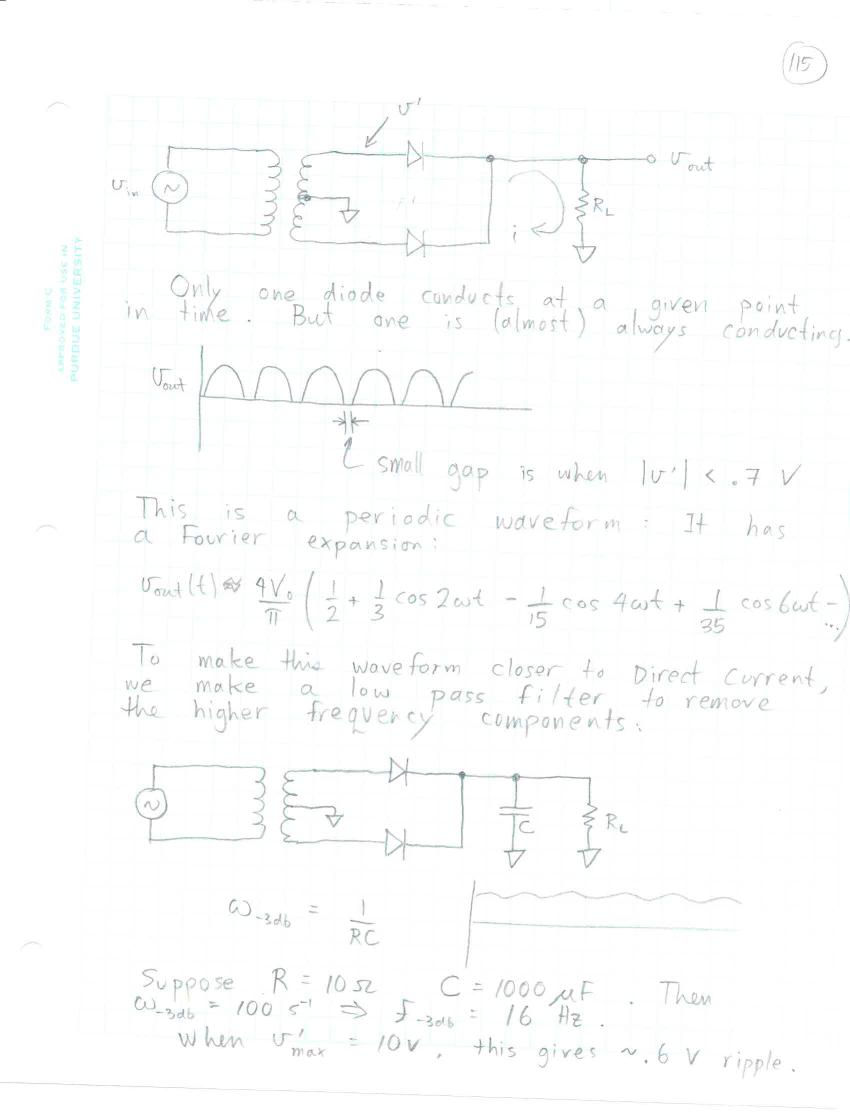 115
υ'
υin
υout
RL
i
FORM C
APPROVED FOR USE IN
PURDUE UNIVERSITY
Only one diode conducts at a given point
in time. But one is (almost) always conducting.
υout
small gap is when |υ'| < .7 V
This is a periodic waveform: It has
a Fourier expansion:
υout(t) ≈ 4V₀/π (1/2 + 1/3 cos 2ωt - 1/15 cos 4ωt + 1/35 cos 6ωt - ...)
To make this waveform closer to Direct Current,
we make a low pass filter to remove
the higher frequency components:
C
RL
ω-3db = 1/RC
Suppose R = 10 Ω C = 1000 μF . Then
ω-3db = 100 s⁻¹ ⇒ f-3db = 16 Hz.
When υ'max = 10v, this gives ~.6 V ripple.